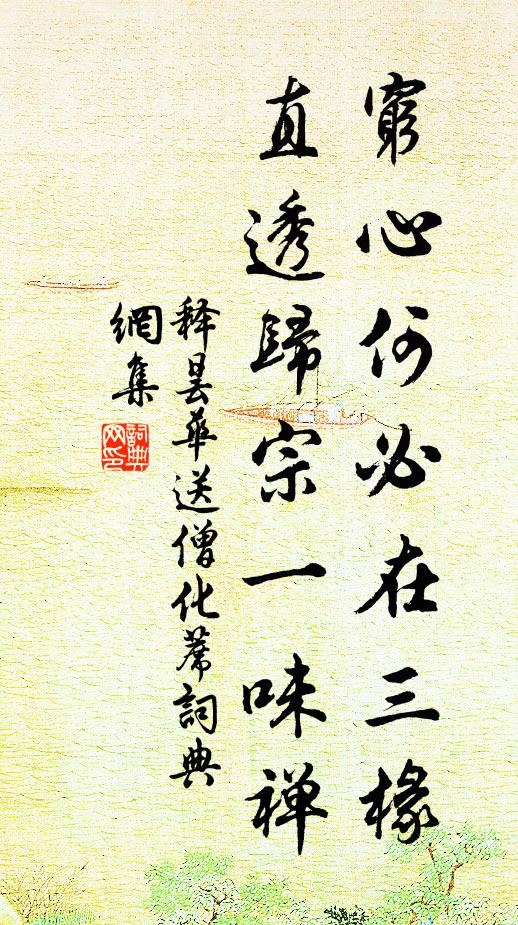 窮心何必在三椽
直透歸宗一味禅
释昙華送僧化蓆詞典
網集
詞典網印